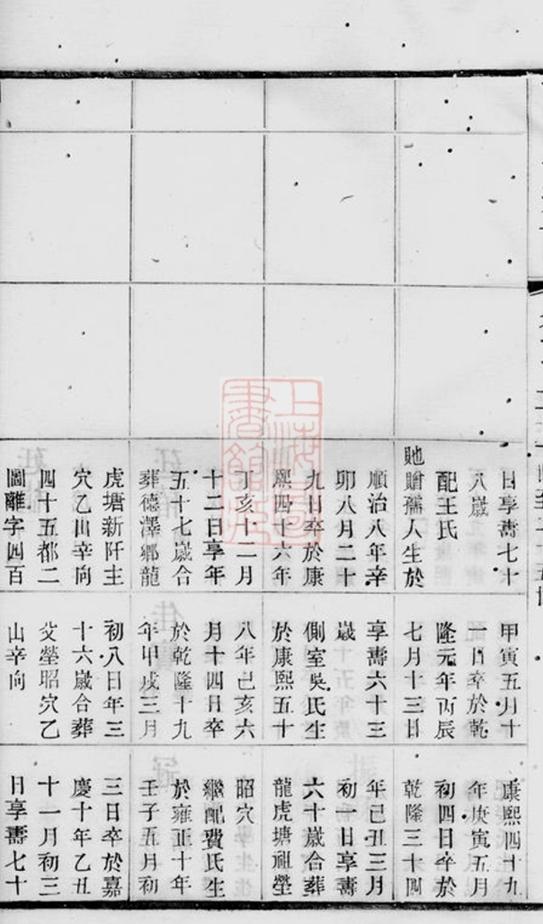 日享壽七十
八歲
配王氏
貤贈孺人生於
順治八年辛
卯八月二十
九日卒於康
熙四十六年
丁亥十二月
十二日享年
五十七歲合
葬德澤鄉龍
虎塘新阡主
穴乙山辛向
四十五都二
圖離字四百
甲寅五月十
一日卒於乾
隆元年丙辰
七月十三日
享壽六十三
歲
側室吳氏生
於康熙五十
八年己亥六
月十四日卒
於乾隆十九
年甲戌三月
初八日年三
十六歲合葬
父塋昭穴乙
山辛向
康熙四十九
年庚寅五月
初四日卒於
乾隆三十四
年己丑三月
初一日享壽
六十歲合葬
龍虎塘祖塋
昭穴
繼配費氏生
於雍正十年
壬子五月初
三日卒於嘉
慶十年乙丑
十一月初三
日享壽七十
上海圖
書館藏